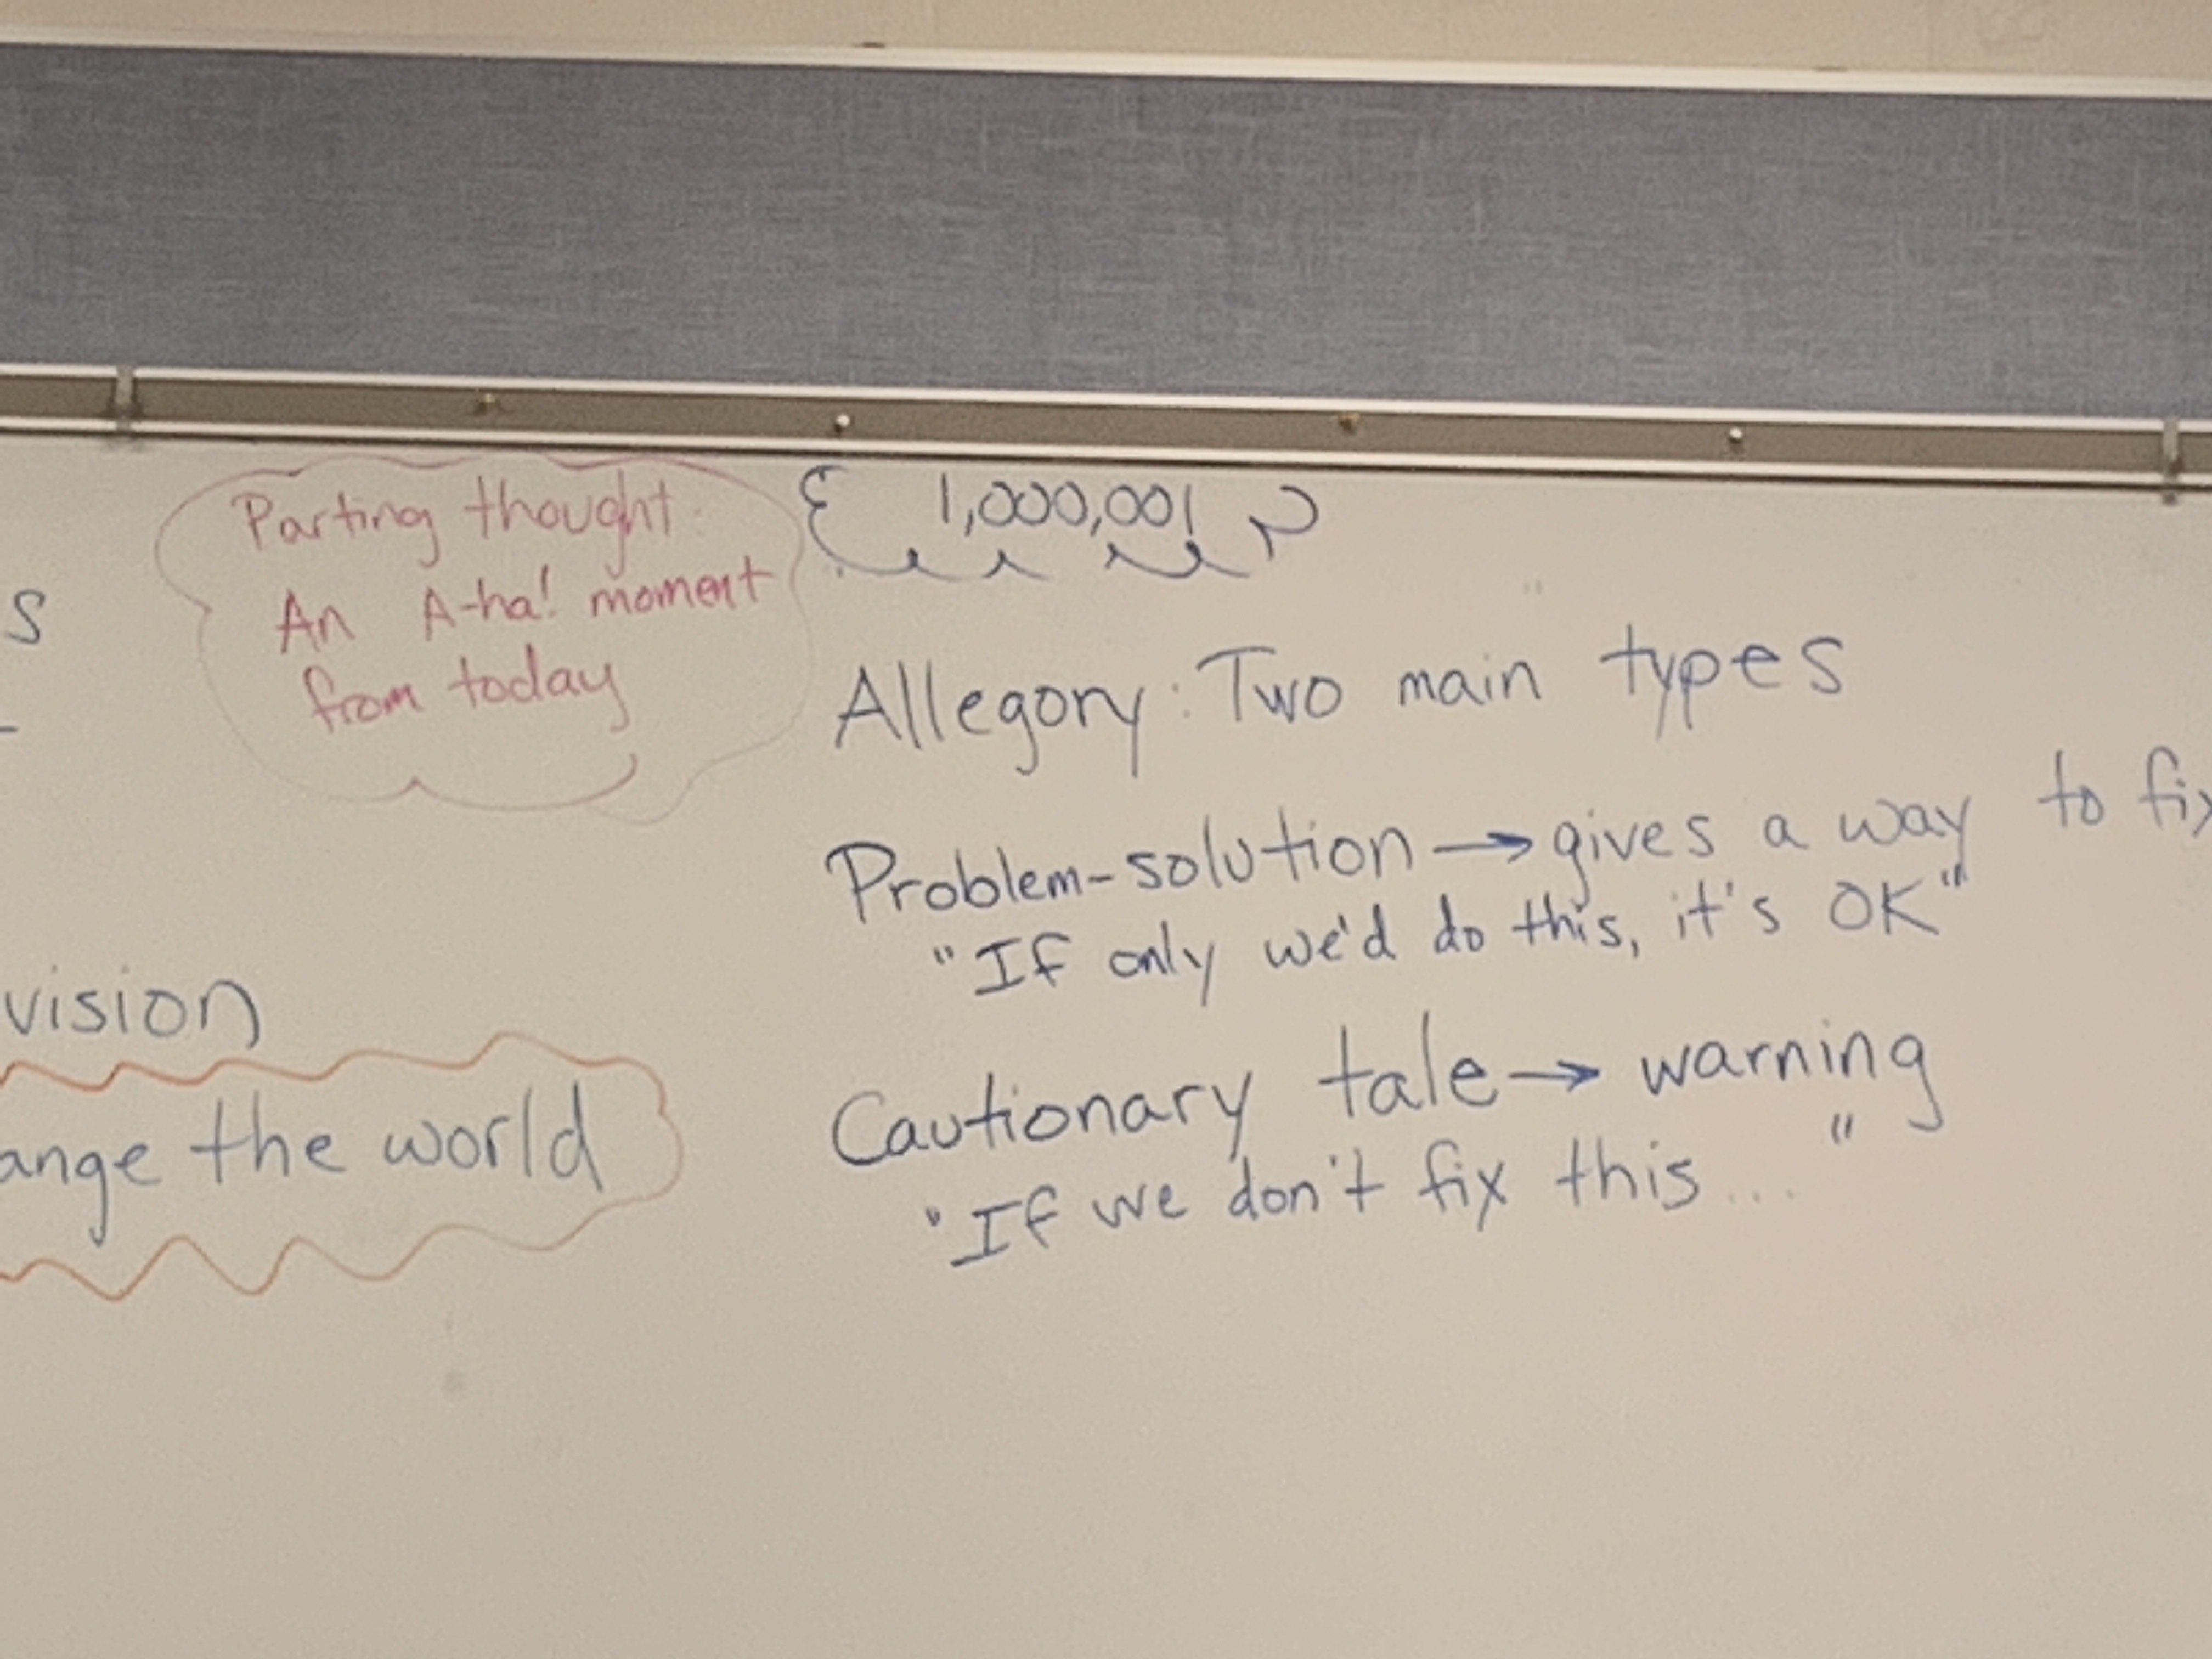 s
Parting thought:
An A-ha! moment
from today
vision
ange the world
1,000,001
Allegory: Two main types
Problem-solution → gives a way to fix
"If only we'd do this, it's OK"
Cautionary tale → warning
"If we don't fix this... "